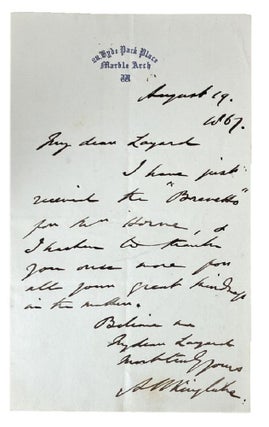 28, Hyde Park Place
Marble Arch
W
August 19.
1867.
My dear Layard
I have just
received the "Brevetto"
for Mr Horne, &
I hasten to thank
you once more for
all your great kindness
in the matter.
Believe me
My dear Layard
Most truly yours
A W Kinglake